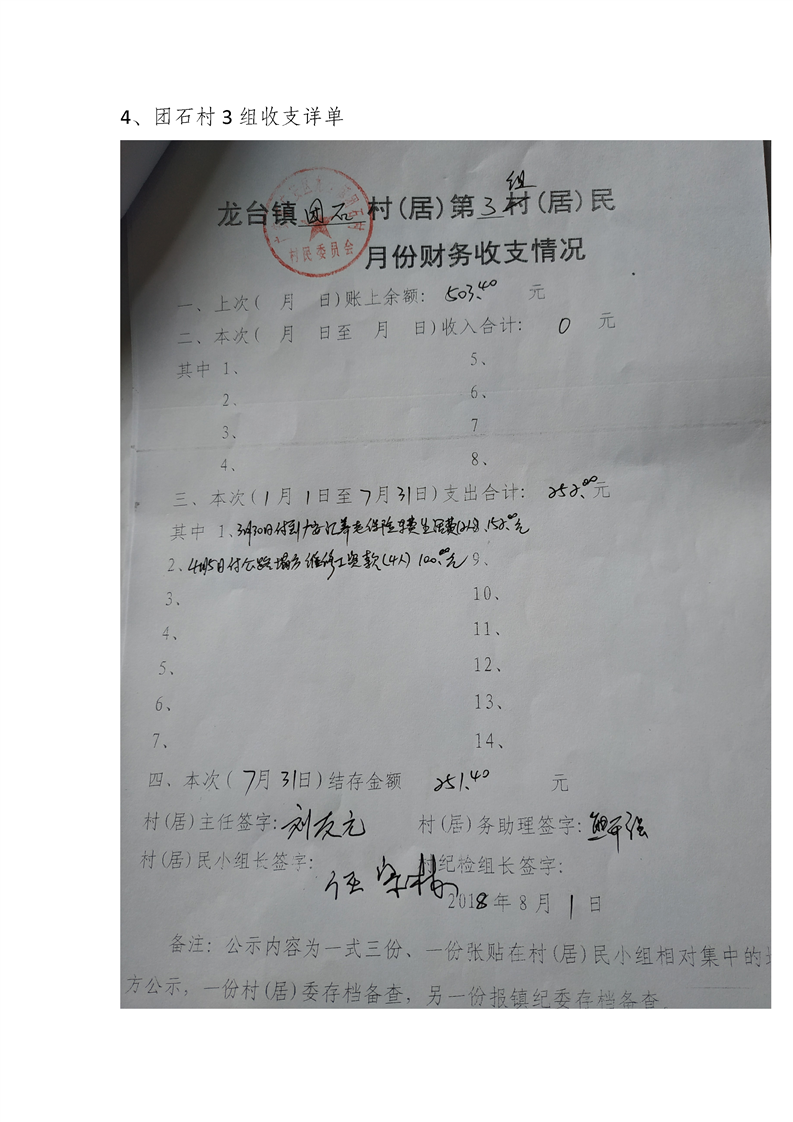 4、团石村3组收支详单
龙台镇团石村(居)第3组村(居)民
村民委员会
月份财务收支情况
一、上次( 月 日)账上余额: 503.40 元
二、本次( 月 日至 月 日)收入合计: 0 元
其中 1、 5、
2、 6、
3、 7
4、 8、
三、本次(1月1日至7月31日)支出合计: 252.00元
其中 1、3月30日付到广安汇养老保险车费生活费(2人)152.00元
2、4月5日付公路塌方维修工资款(4人)100.00元 9、
3、 10、
4、 11、
5、 12、
6、 13、
7、 14、
四、本次(7月31日)结存金额 251.40 元
村(居)主任签字:刘友元 村(居)务助理签字:
村(居)民小组长签字: 村纪检组长签字:
2018年8月1日
备注: 公示内容为一式三份、一份张贴在村(居)民小组相对集中的
方公示, 一份村(居)委存档备查, 另一份报镇纪委存档备查.